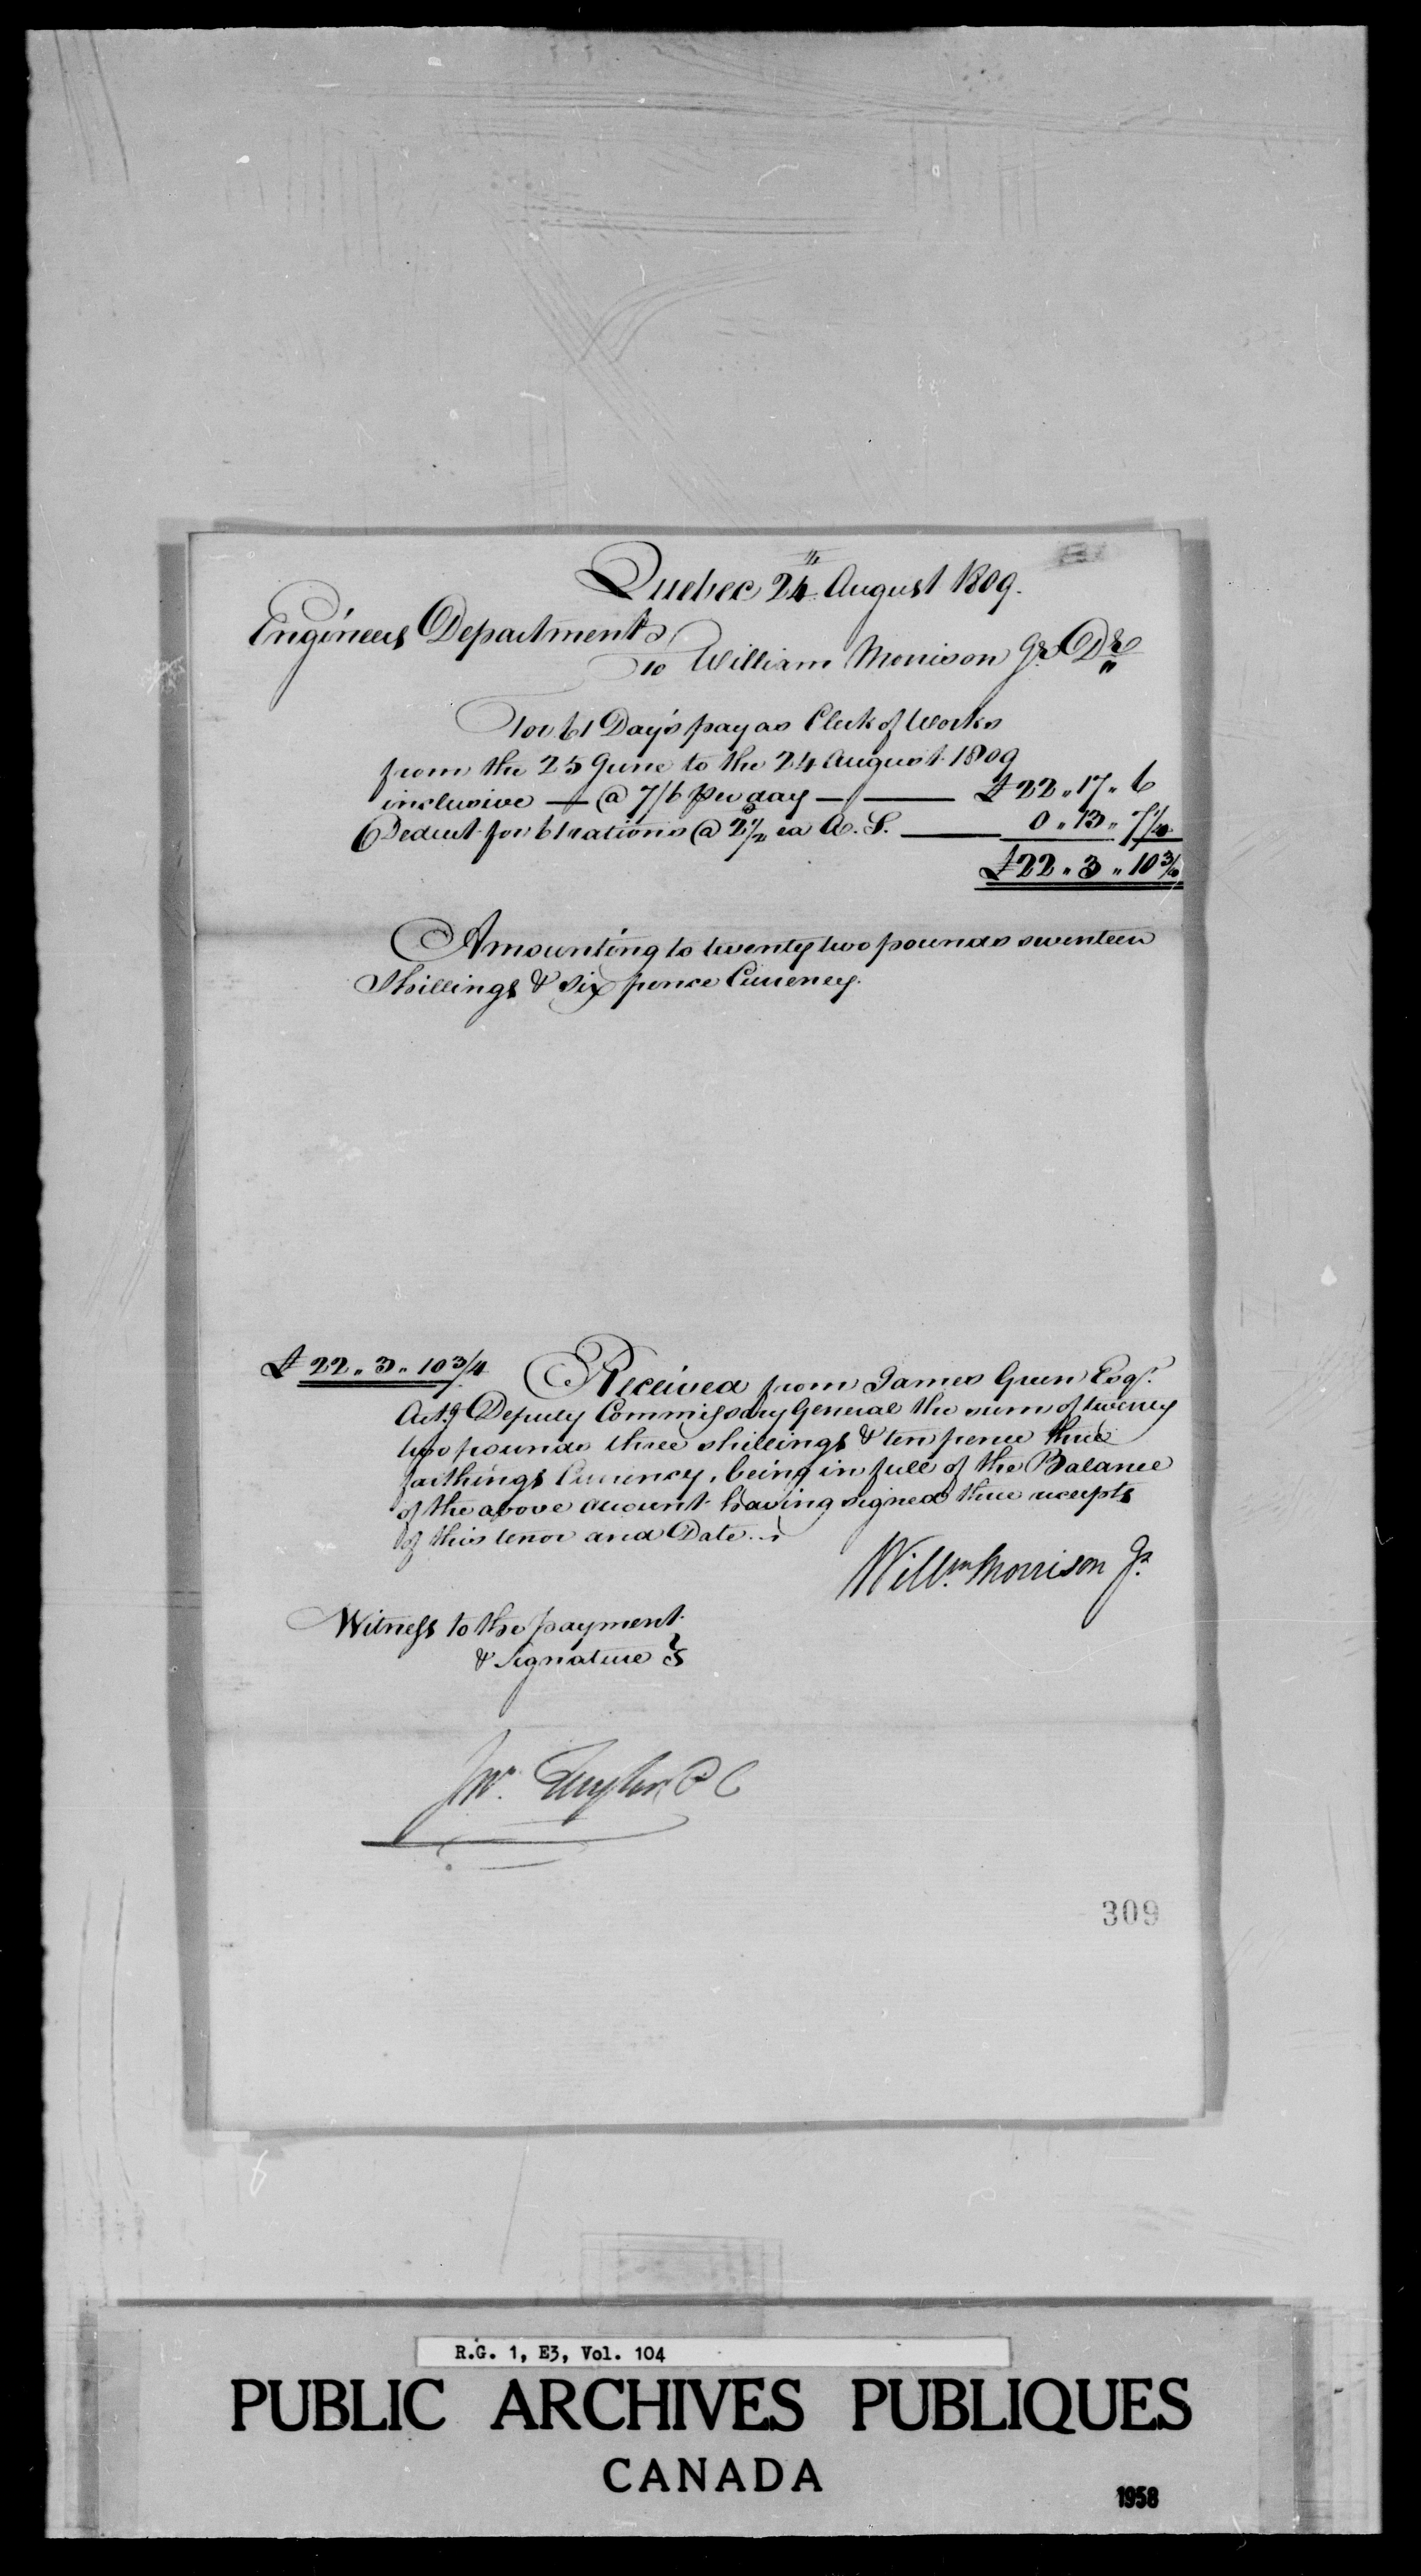 Quebec 24th August 1809.
Engineers Department
To William Morrison Jr. Dr.
For 61 Day's pay as Clerk of Works
from the 25 June to the 24 August 1809
inclusive — @ 7/6 per day — £22 " 17 " 6
Deduct for 61 rations @ 2 1/2 ea A. S. — 0 " 13 " 7 1/4
£22 " 3 " 10 3/4
Amounting to twenty two pounds seventeen
Shillings & Six pence Currency.
£22 " 3 " 10 3/4 Received from James Green Esqr.
Actg Deputy Commissary General the sum of twenty
two pounds three shillings & ten pence three
farthings Currency, being in full of the Balance
of the above account having signed three receipts
of this tenor and Date.
Willm. Morrison Jr.
Witness to the payment
& Signature
309
R.G. 1, E3, Vol. 104
PUBLIC ARCHIVES PUBLIQUES
CANADA
1958